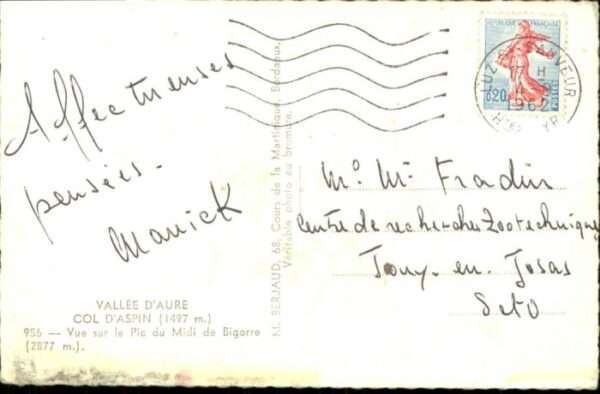 Affectueuses
pensées.
Manick
VALLÉE D'AURE
COL D'ASPIN (1497 m.)
956 — Vue sur le Pic du Midi de Bigorre
(2877 m.).
M. BERJAUD, 68, Cours de la Martinique, Bordeaux.
Véritable photo au bromure.
REPUBLIQUE FRANÇAISE
0,20
17 H
1962
Mr Mr Fradin
Centre de recherches Zootechniques
Jouy. en. Josas
S et O